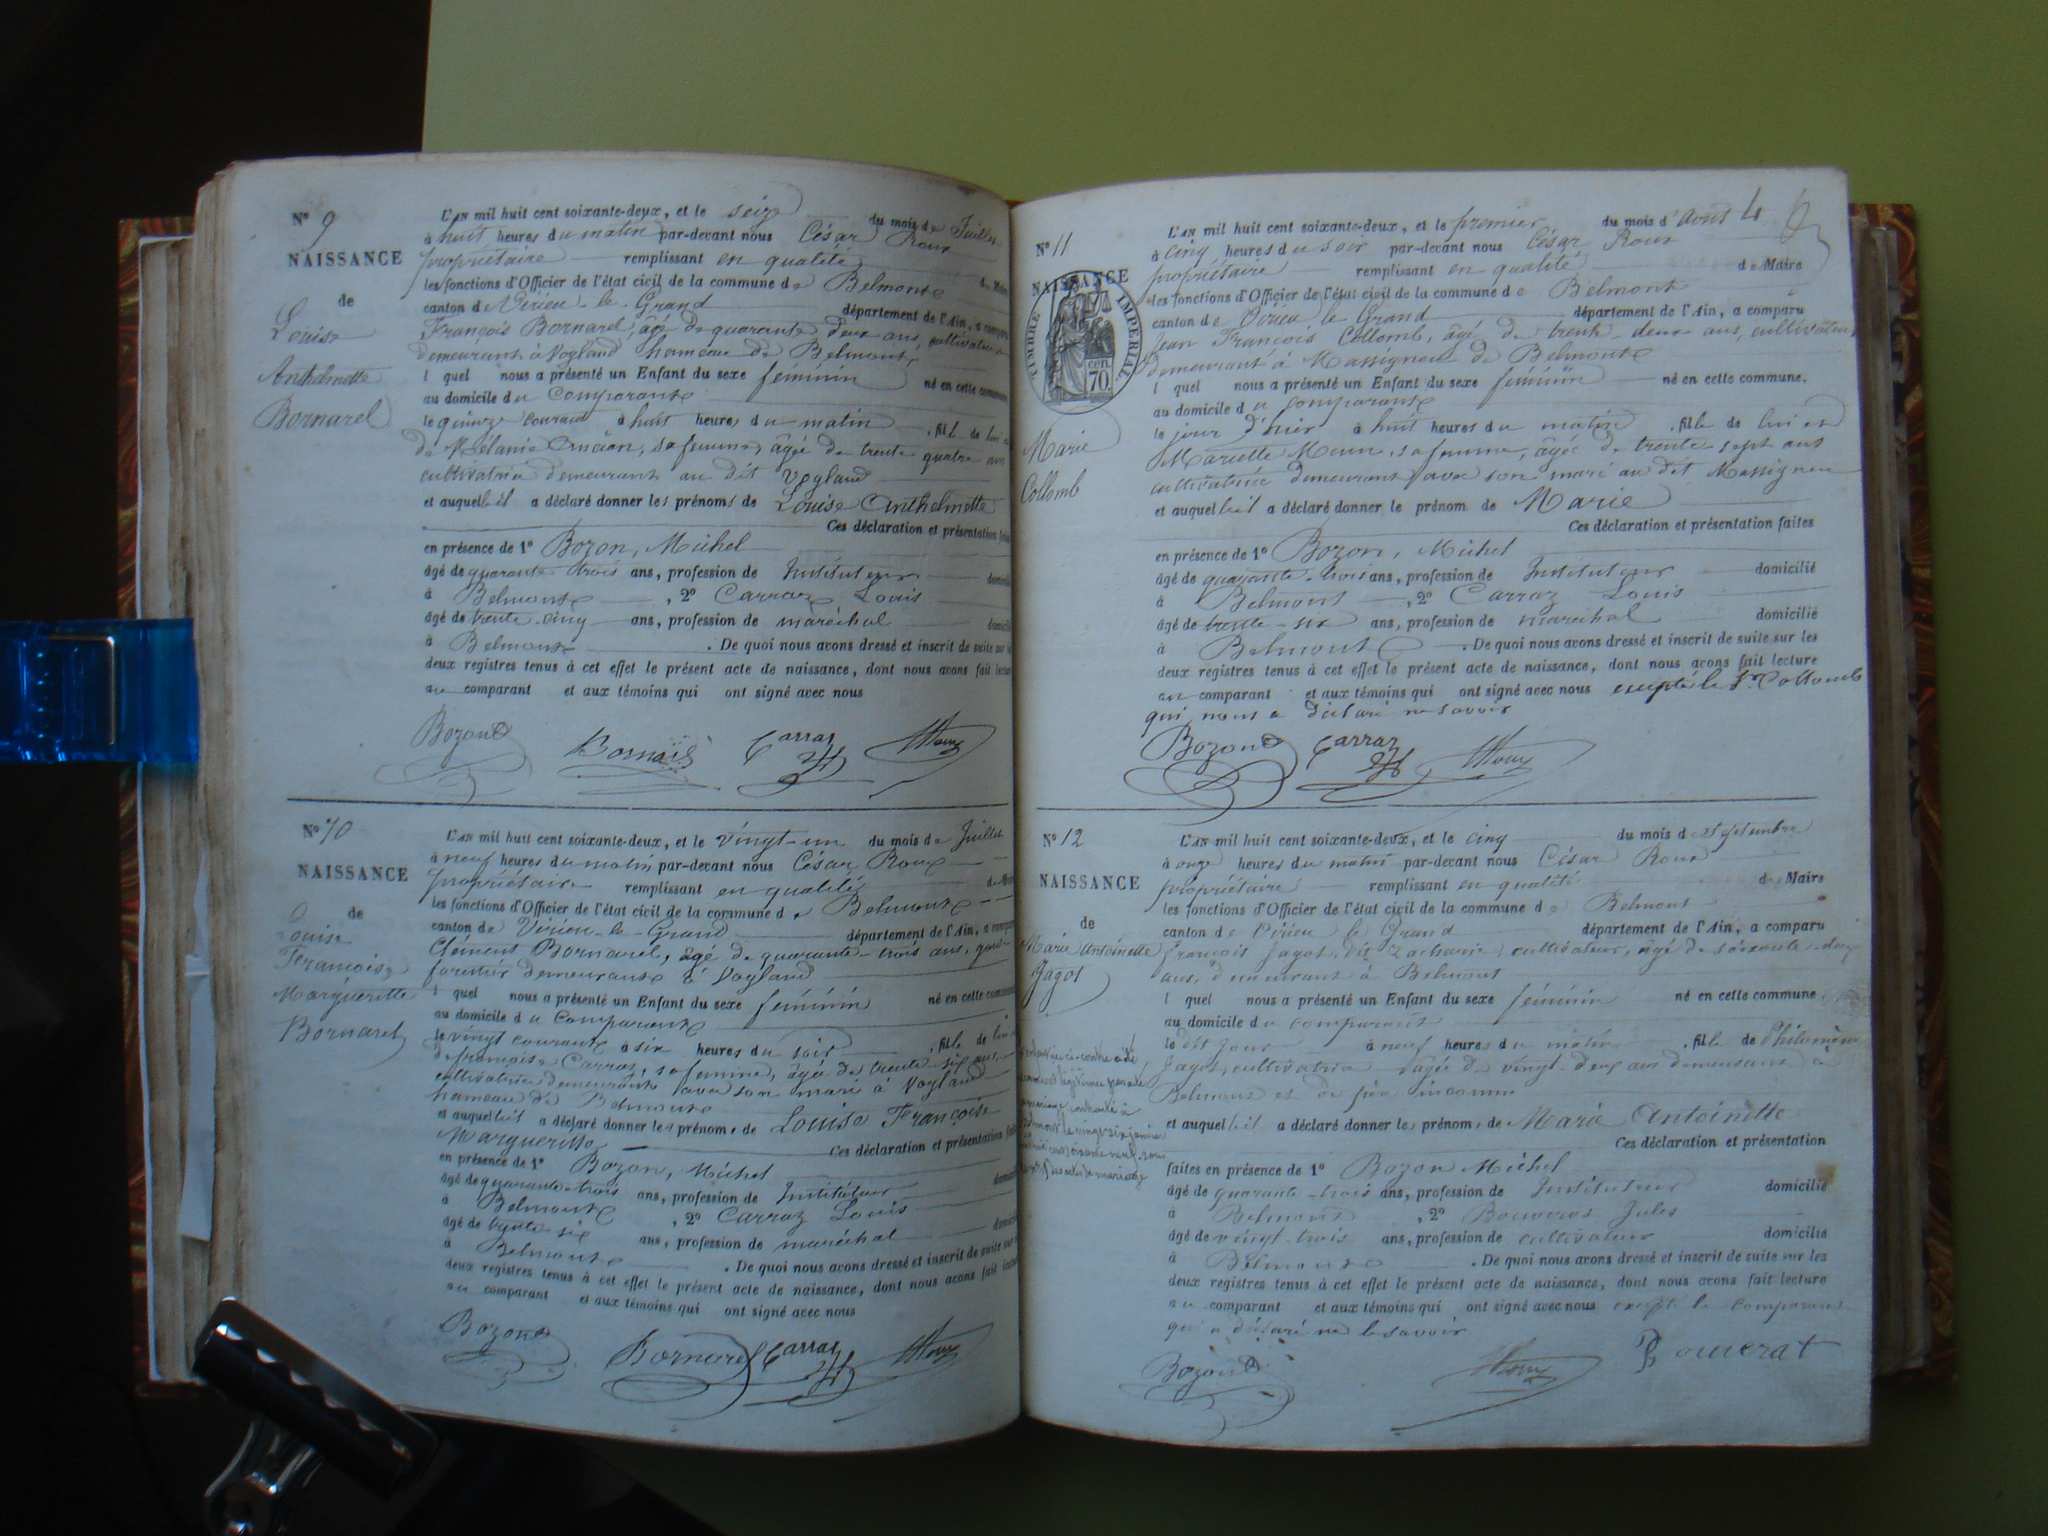 N° 9
NAISSANCE
de
Louise
Anthelmette
Bornarel
L'AN mil huit cent soixante-deux, et le seize du mois de Juillet
à huit heures du matin par-devant nous César Roux
propriétaire remplissant en qualité de Maire
les fonctions d'Officier de l'état civil de la commune de Belmont
canton de Virieu le Grand département de l'Ain, a comparu
François Bornarel, âgé de quarante deux ans, cultivateur
demeurant à Vogland hameau de Belmont
lequel nous a présenté un Enfant du sexe féminin né en cette commune
au domicile du comparant
le quinze courant à huit heures du matin, fille de lui et
de Mélanie, sa femme, âgée de trente quatre ans
cultivatrice demeurant au dit Vogland
et auquel il a déclaré donner les prénoms de Louise Anthelmette
Ces déclaration et présentation faites
en présence de 1° Bozon, Michel
âgé de quarante trois ans, profession de Instituteur domicilié
à Belmont, 2° Carraz Louis
âgé de trente-cinq ans, profession de maréchal domicilié
à Belmont. De quoi nous avons dressé et inscrit de suite sur les
deux registres tenus à cet effet le présent acte de naissance, dont nous avons fait lecture
au comparant et aux témoins qui ont signé avec nous
Bozon Carraz Roux
N° 10
NAISSANCE
de
Louise
Françoise
Margueritte
Bornarel
L'AN mil huit cent soixante-deux, et le vingt-un du mois de Juillet
à neuf heures du matin par-devant nous César Roux
propriétaire remplissant en qualité de Maire
les fonctions d'Officier de l'état civil de la commune de Belmont
canton de Virieu-le-Grand département de l'Ain, a comparu
Clément Bornarel, âgé de quarante-trois ans, garde-
forestier demeurant à Vogland
lequel nous a présenté un Enfant du sexe féminin né en cette commune
au domicile du comparant
le vingt courant à six heures du soir, fille de lui et
de françoise Carraz, sa femme, âgée de trente-six ans,
cultivatrice demeurant avec son mari à Vogland
hameau de Belmont
et auquel il a déclaré donner les prénoms de Louise Françoise
Margueritte Ces déclaration et présentation faites
en présence de 1° Bozon, Michel
âgé de quarante-trois ans, profession de Instituteur domicilié
à Belmont, 2° Carraz Louis
âgé de trente six ans, profession de maréchal domicilié
à Belmont. De quoi nous avons dressé et inscrit de suite sur les
deux registres tenus à cet effet le présent acte de naissance, dont nous avons fait lecture
au comparant et aux témoins qui ont signé avec nous
Bozon Bornarel Carraz Roux
4
N° 11
NAISSANCE
TIMBRE IMPERIAL
CEN. 70
Marie
Collomb
L'AN mil huit cent soixante-deux, et le premier du mois d'août
à cinq heures du soir par-devant nous César Roux
propriétaire remplissant en qualité de Maire
les fonctions d'Officier de l'état civil de la commune de Belmont
canton de Virieu le Grand département de l'Ain, a comparu
Jean François Collomb, âgé de trente-deux ans, cultivateur,
demeurant à Massigneu de Belmont
lequel nous a présenté un Enfant du sexe féminin né en cette commune.
au domicile du comparant
le jour d'hier à huit heures du matin, fille de lui et
Mariette, sa femme, âgée de trente sept ans
cultivatrice demeurant avec son mari au dit Massigneu
et auquel il a déclaré donner le prénom de Marie
Ces déclaration et présentation faites
en présence de 1° Bozon, Michel
âgé de quarante-trois ans, profession de Instituteur domicilié
à Belmont, 2° Carraz Louis
âgé de trente-six ans, profession de maréchal domicilié
à Belmont. De quoi nous avons dressé et inscrit de suite sur les
deux registres tenus à cet effet le présent acte de naissance, dont nous avons fait lecture
au comparant et aux témoins qui ont signé avec nous excepté le Sr Collomb
qui nous a déclaré ne savoir
Bozon Carraz Roux
N° 12
NAISSANCE
de
Marie Antoinette
Jagot
L'AN mil huit cent soixante-deux, et le cinq du mois de septembre
à onze heures du matin par-devant nous César Roux
propriétaire remplissant en qualité de Maire
les fonctions d'Officier de l'état civil de la commune de Belmont
canton de Virieu le Grand département de l'Ain, a comparu
François Jagot, dit Zacharie, cultivateur, âgé de soixante-deux
ans, demeurant à Belmont
lequel nous a présenté un Enfant du sexe féminin né en cette commune.
au domicile du comparant
le dit jour à neuf heures du matin, fille de Philomène
Jagot, cultivatrice âgée de vingt-deux ans demeurant à
Belmont et de père inconnu
et auquel il a déclaré donner les prénoms de Marie Antoinette
Ces déclaration et présentation
faites en présence de 1° Bozon Michel
âgé de quarante-trois ans, profession de Instituteur domicilié
à Belmont, 2° Jules
âgé de vingt-trois ans, profession de cultivateur domicilié
à Belmont. De quoi nous avons dressé et inscrit de suite sur les
deux registres tenus à cet effet le présent acte de naissance, dont nous avons fait lecture
au comparant et aux témoins qui ont signé avec nous excepté le comparant
qui a déclaré ne le savoir
Bozon Roux